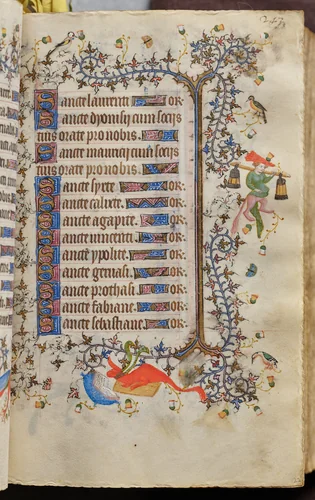 247
Sancte laurenti or.
Sancte dyonisy cum socijs
tuis orate pro nobis.
Sancte maurici cum socijs
tuis orate pro nobis.
Sancte or.
Sancte calixte or.
Sancte agapite or.
Sancte vincenti or.
Sancte ypolite or.
Sancte geruasi. or.
Sancte prothasi or.
Sancte fabiane. or.
Sancte sebastiane or.